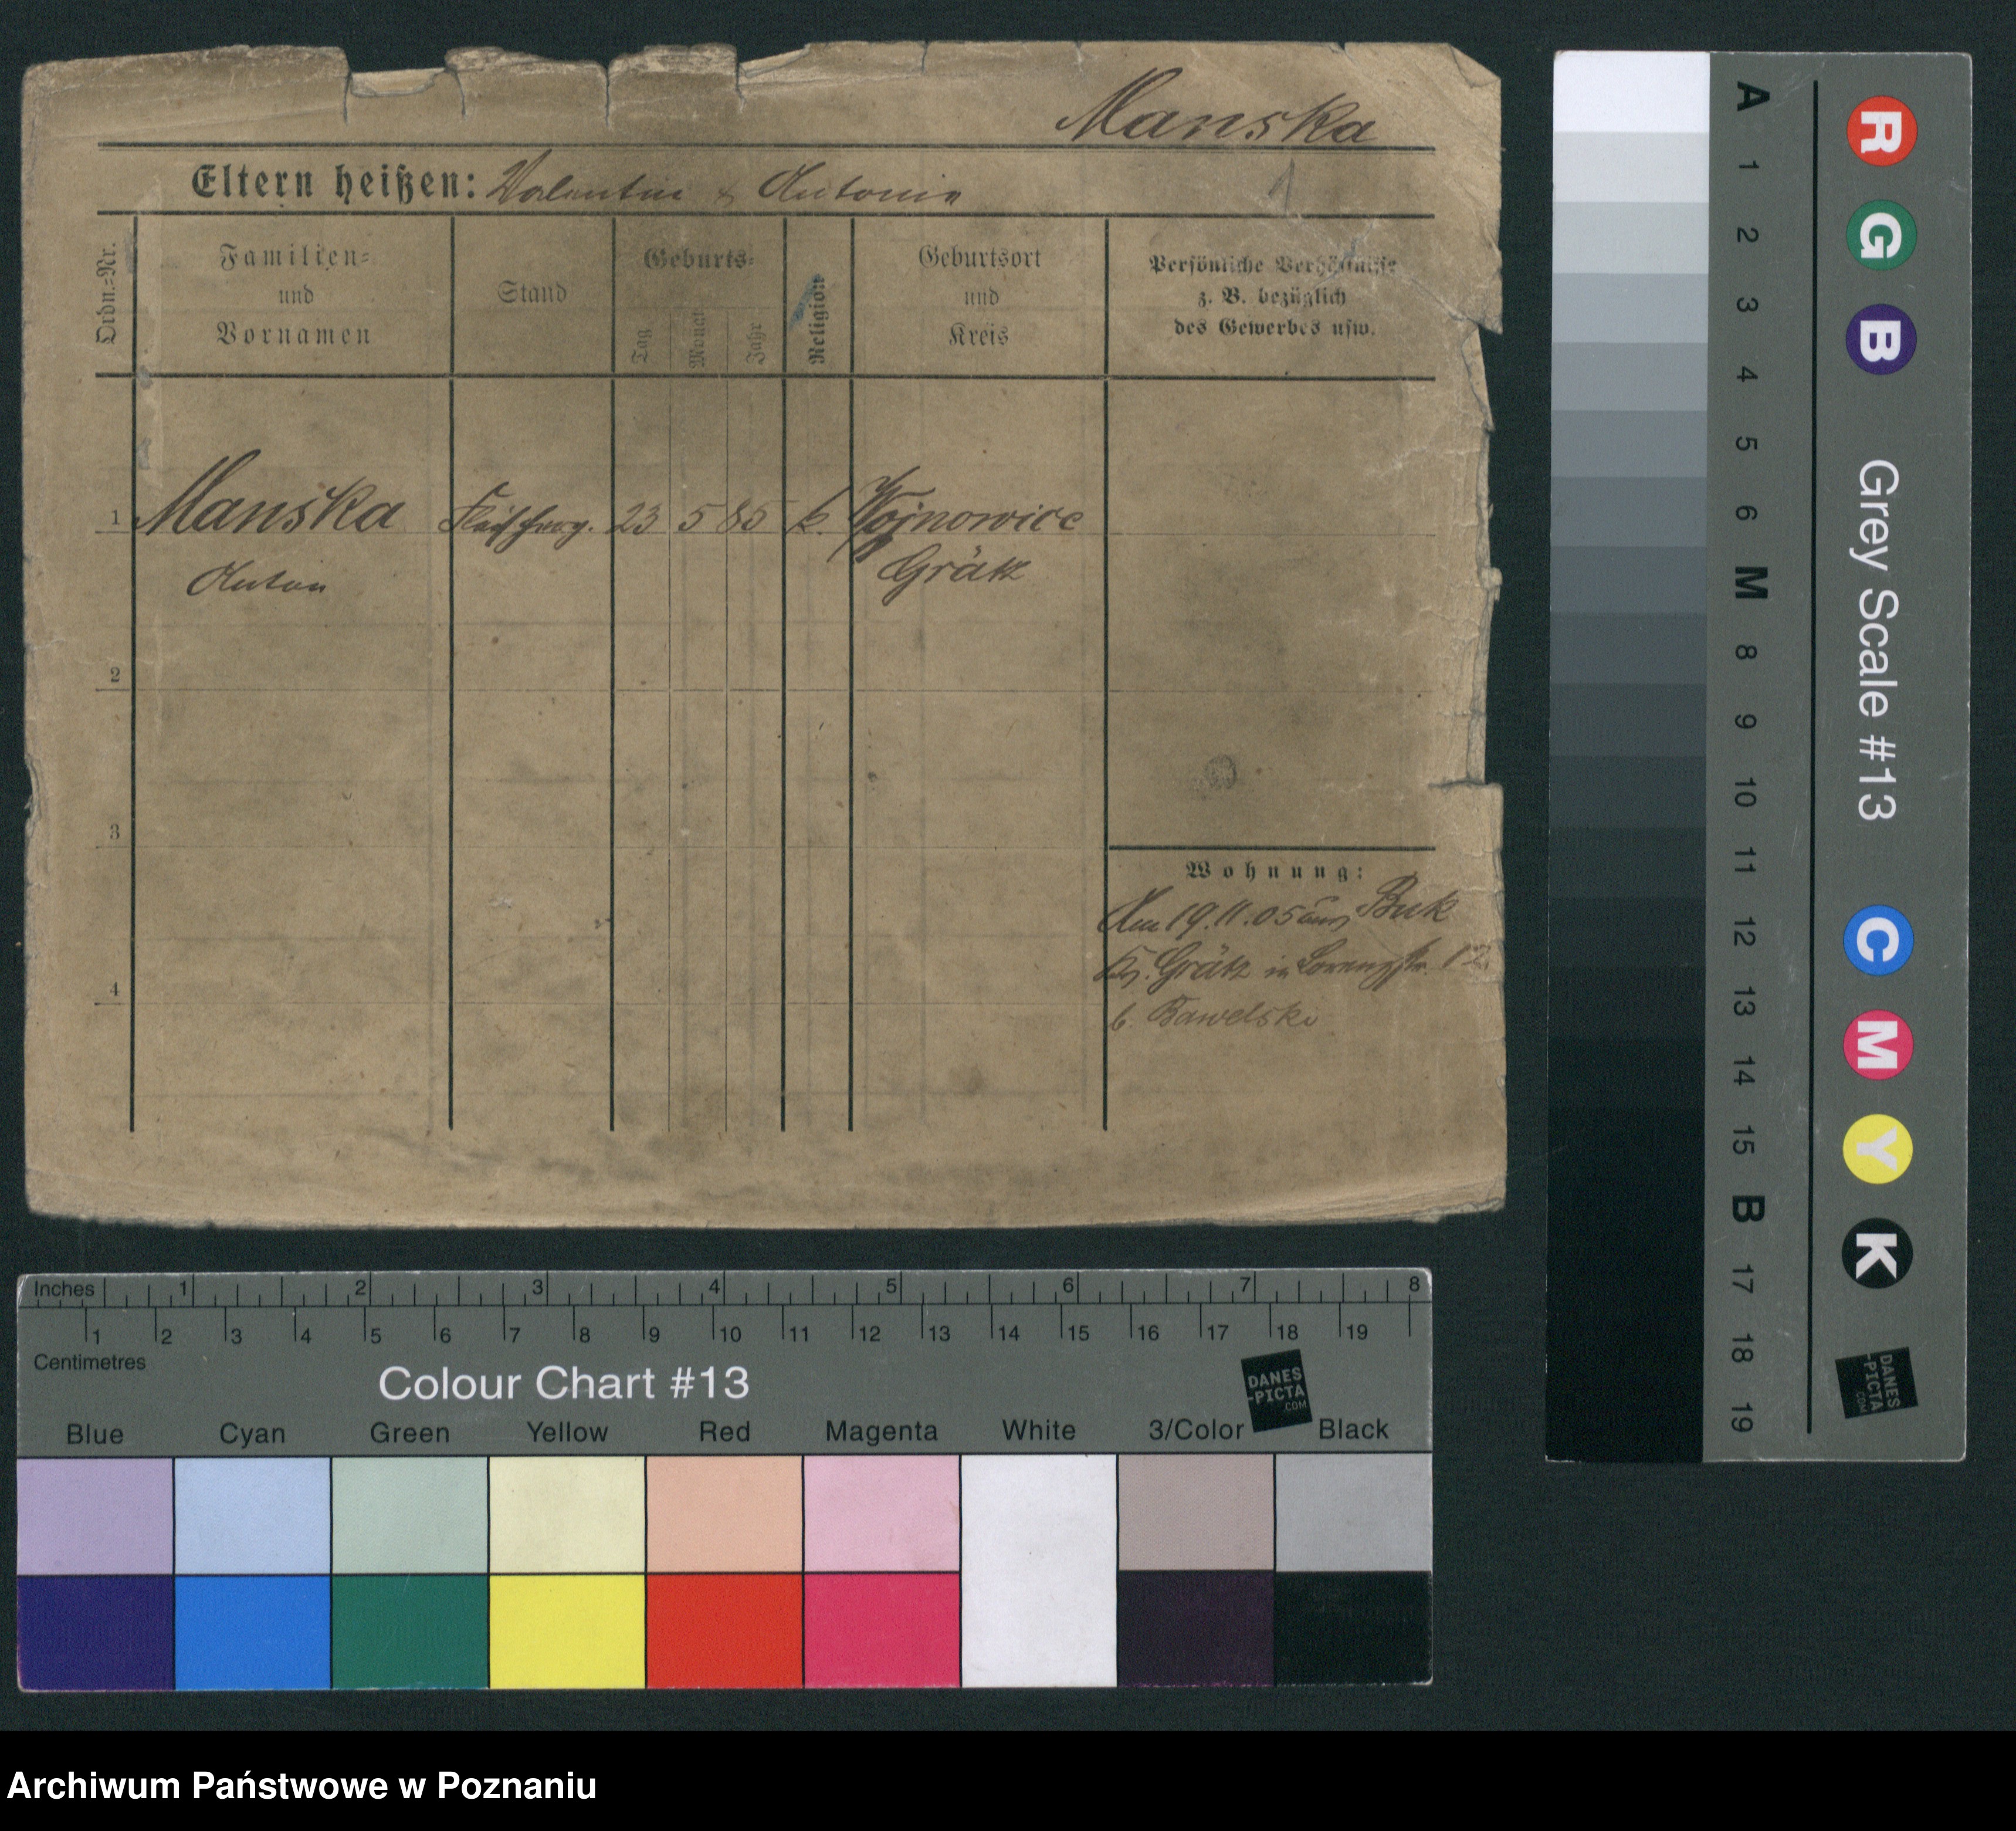 Manska
Eltern heißen: Valentin & Antonie
1
Ordn.-Nr.
Familien-
und
Vornamen
Stand
Geburts-
Tag
Monat
Jahr
Religion
Geburtsort
und
Kreis
Persönliche Verhältnisse
z. B. bezüglich
des Gewerbes usw.
1 Manska 23 5 85 k. Wojnowice
Anton Grätz
2
3
4
Wohnung:
Am 19.11.05 aus Buk
Kr. Grätz in Lorenzstr. 12
b. Bawelski
A
1
2
3
4
5
6
M
8
9
10
11
12
13
14
15
B
17
18
19
R
G
B
Grey Scale #13
C
M
Y
K
DANES
-PICTA
.COM
Inches 1 2 3 4 5 6 7 8
1 2 3 4 5 6 7 8 9 10 11 12 13 14 15 16 17 18 19
Centimetres
Colour Chart #13
DANES
-PICTA
.COM
Blue Cyan Green Yellow Red Magenta White 3/Color Black
Archiwum Państwowe w Poznaniu